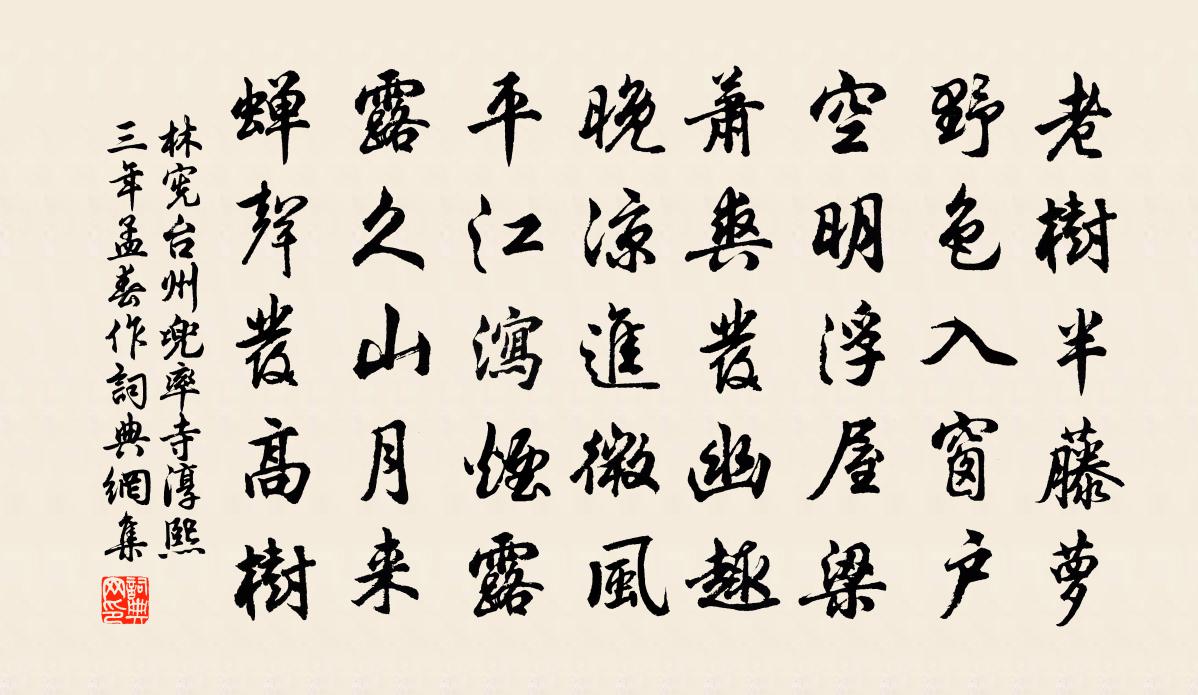 老樹半藤蘿
野色入窗戶
空明浮屋梁
蕭爽發幽趣
晚涼進微風
平江瀉煙露
露久山月来
蝉聲發高樹
林宪台州兜率寺淳熙
三年孟春作詞典網集
詞典
网印